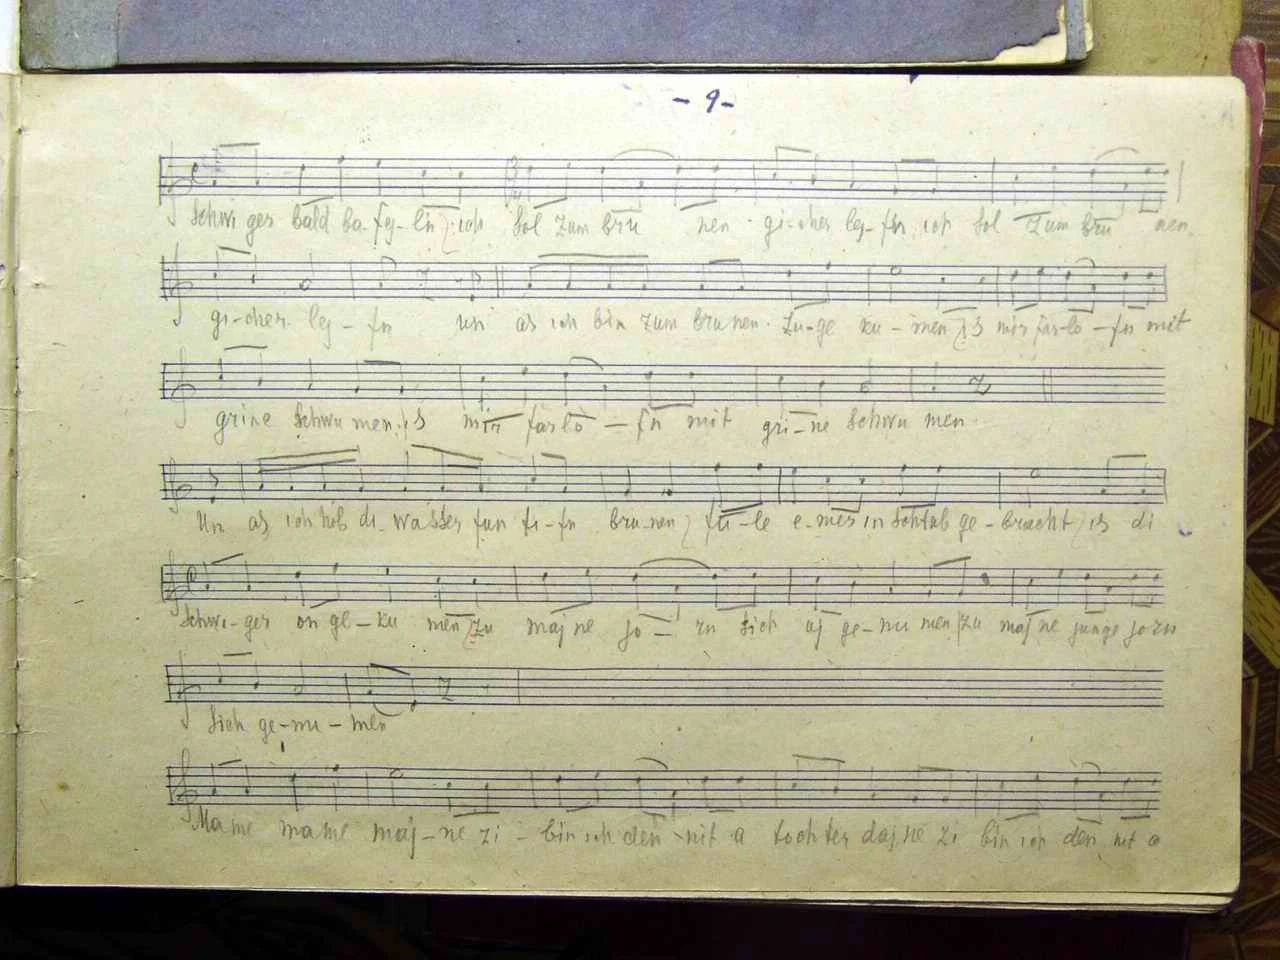 - 9 -
Schwi ger bald ba-fej-ln, ich Sol zum bru nen gi-cher lej-fn, ich Sol zum bru nen
gi-cher lej-fn un as ich bin zum brunen. zu-ge ku-men, is mir far-lo-fn mit
grine Schwu men, is mir farlo-fn mit gri-ne Schwu men
Un as ich hob di wasser fun ti-fn bru-nen, fu-le e-mer in Schtub ge-bracht, is di
Schwi-ger on ge-ku men, zu maj ne jo-rn Sich uj ge-nu men, zu maj ne junge jorn
Sich ge-nu-men
Mame mame maj-ne zi-bin ich den nit a tochter dajne zi bin ich den nit a